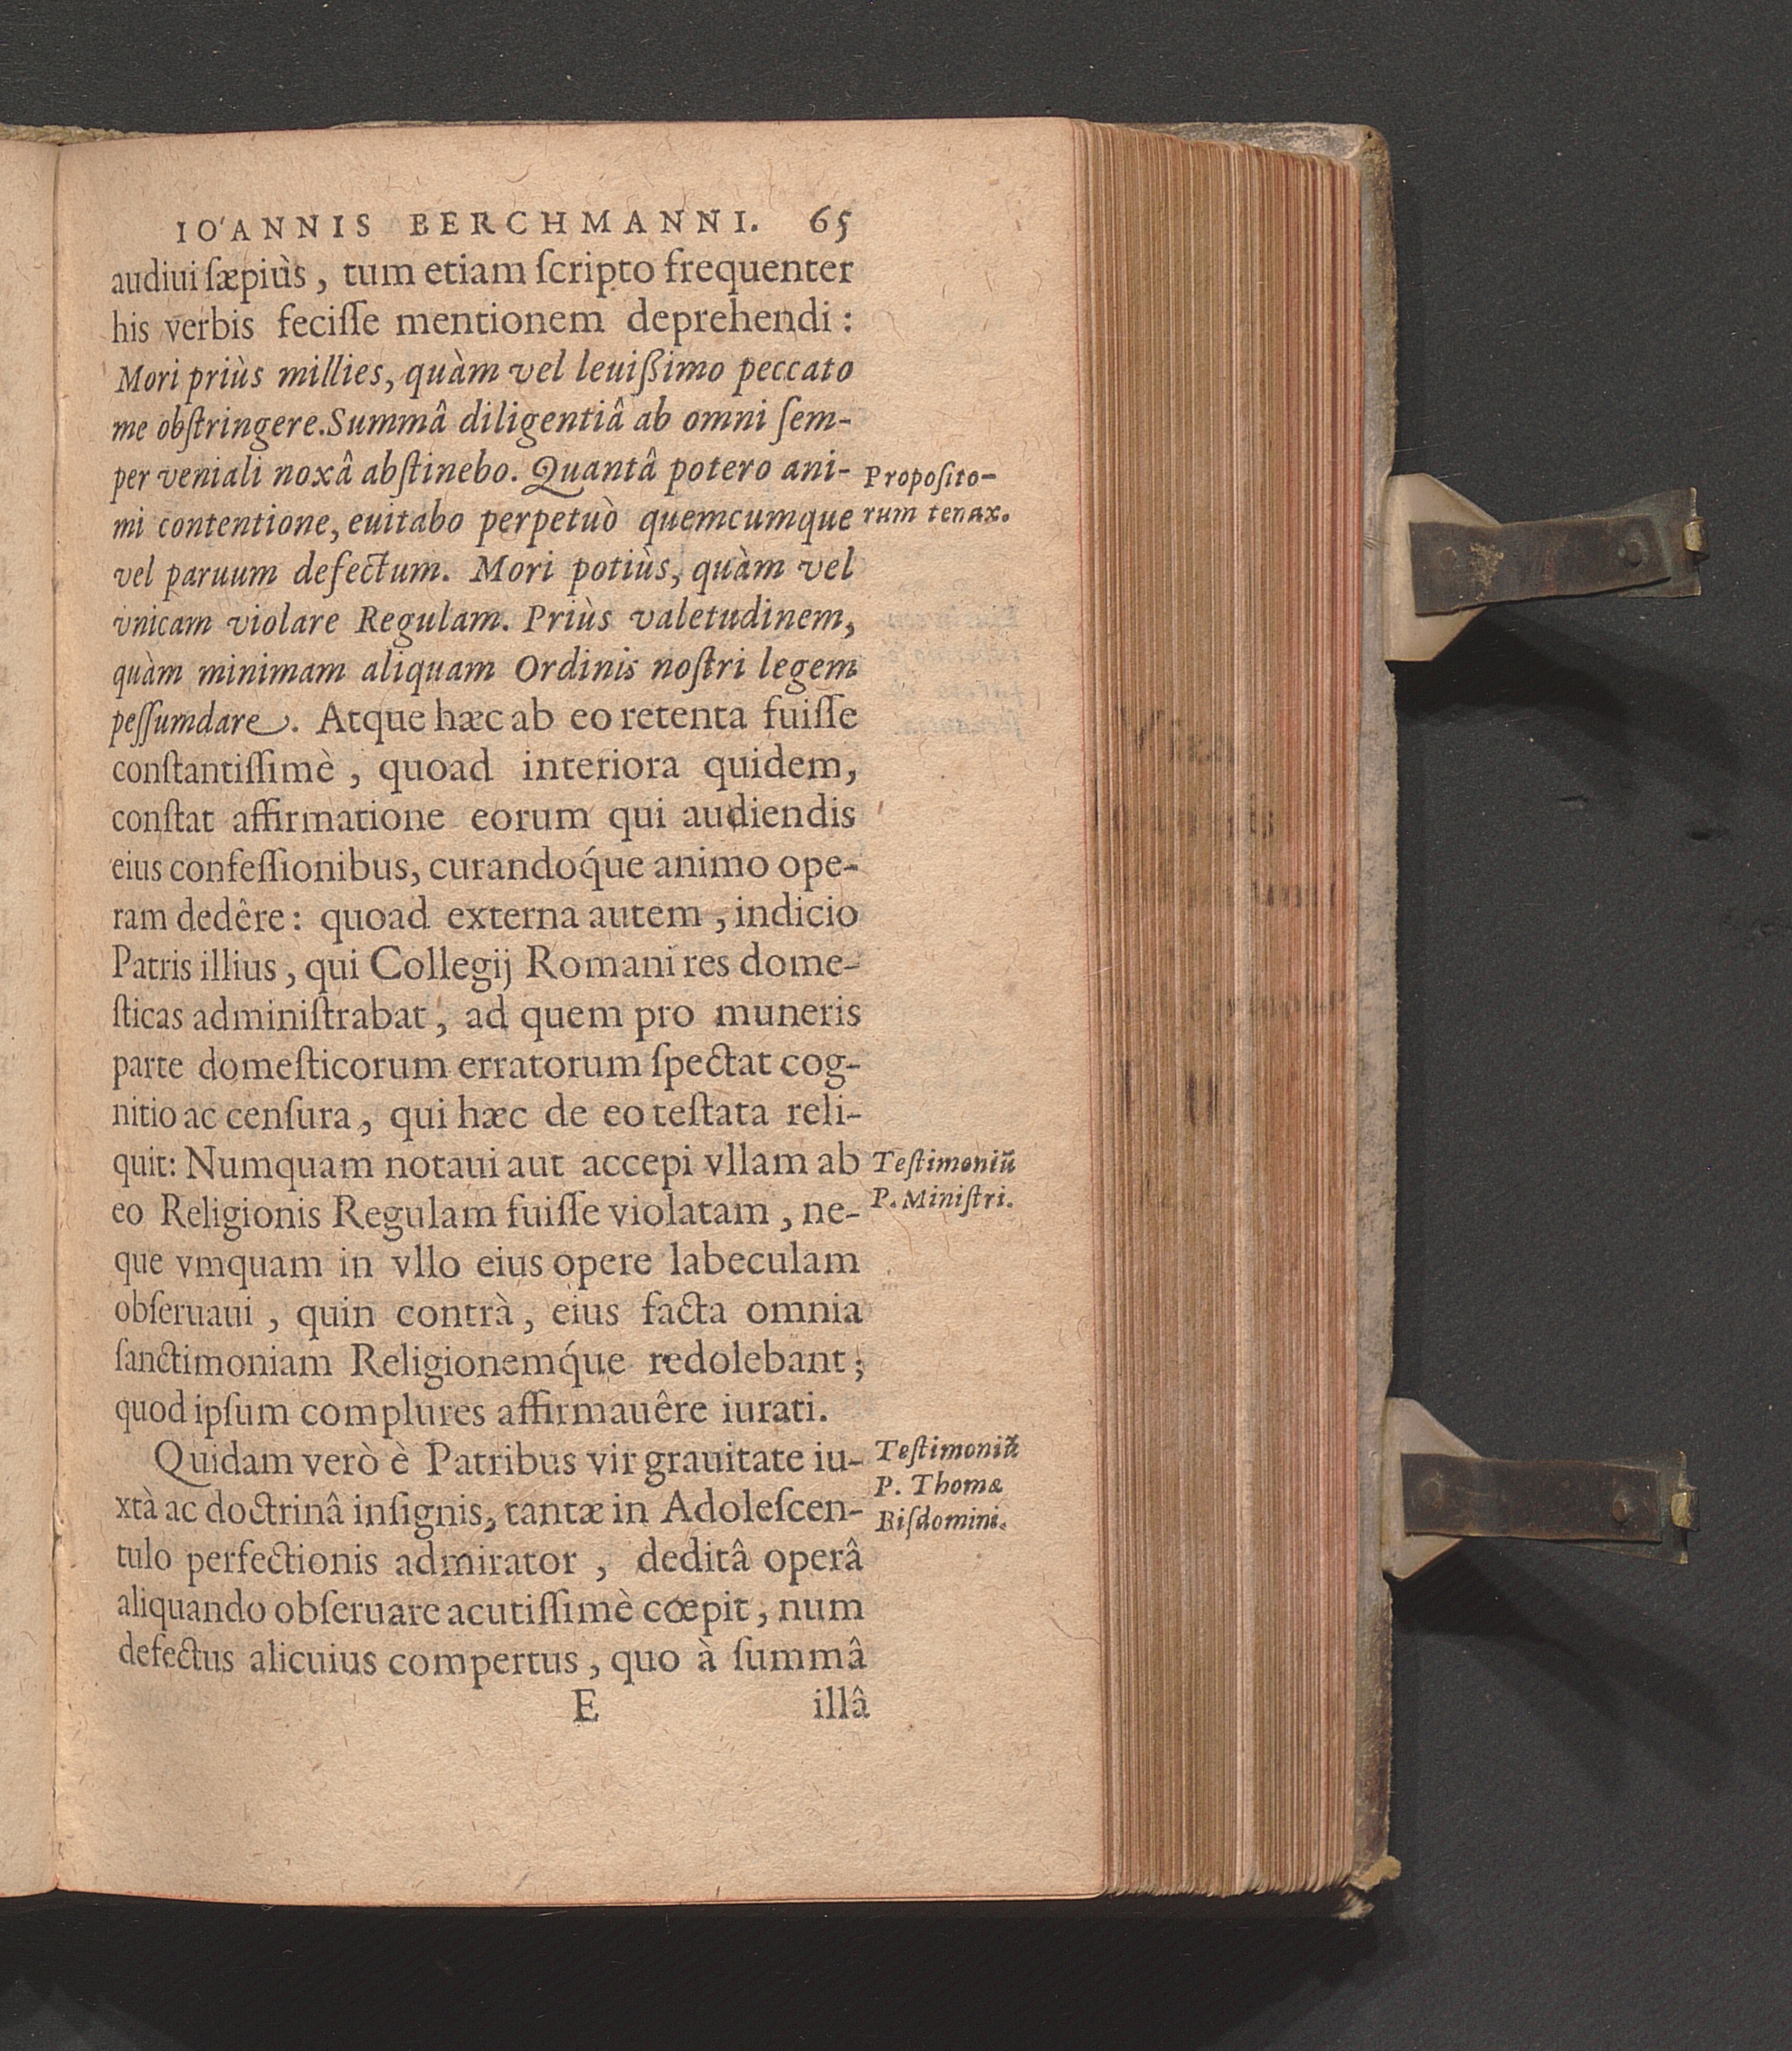 IOANNIS BERCHMANNI. 65
audiui ſæpiùs, tum etiam ſcripto frequenter
his verbis feciſſe mentionem deprehendi:
Mori priùs millies, quàm vel leuißimo peccato
me obſtringere. Summâ diligentiâ ab omni ſem-
per veniali noxâ abſtinebo. Quantâ potero ani-
mi contentione, euitabo perpetuò quemcumque
Propoſito-
rum tenax.
vel paruum defectum. Mori potiùs, quàm vel
vnicam violare Regulam. Priùs valetudinem,
quàm minimam aliquam Ordinis noſtri legem
peſſumdare. Atque hæc ab eo retenta fuiſſe
conſtantiſſimè, quoad interiora quidem,
conſtat affirmatione eorum qui audiendis
eius confeſſionibus, curandoq́ue animo ope-
ram dedêre: quoad externa autem, indicio
Patris illius, qui Collegij Romani res dome-
ſticas adminiſtrabat, ad quem pro muneris
parte domeſticorum erratorum ſpectat cog-
nitio ac cenſura, qui hæc de eo teſtata reli-
quit: Numquam notaui aut accepi vllam ab
eo Religionis Regulam fuiſſe violatam, ne-
Teſtimoniũ
P. Miniſtri.
que vmquam in vllo eius opere labeculam
obſeruaui, quin contrà, eius facta omnia
ſanctimoniam Religionemq́ue redolebant;
quod ipſum complures affirmauêre iurati.
Quidam verò è Patribus vir grauitate iu-
xtà ac doctrinâ inſignis, tantæ in Adoleſcen-
Teſtimoniũ
P. Thomæ
Biſdomini.
tulo perfectionis admirator, deditâ operâ
aliquando obſeruare acutiſſimè cœpit, num
defectus alicuius compertus, quo à ſummâ
E illâ